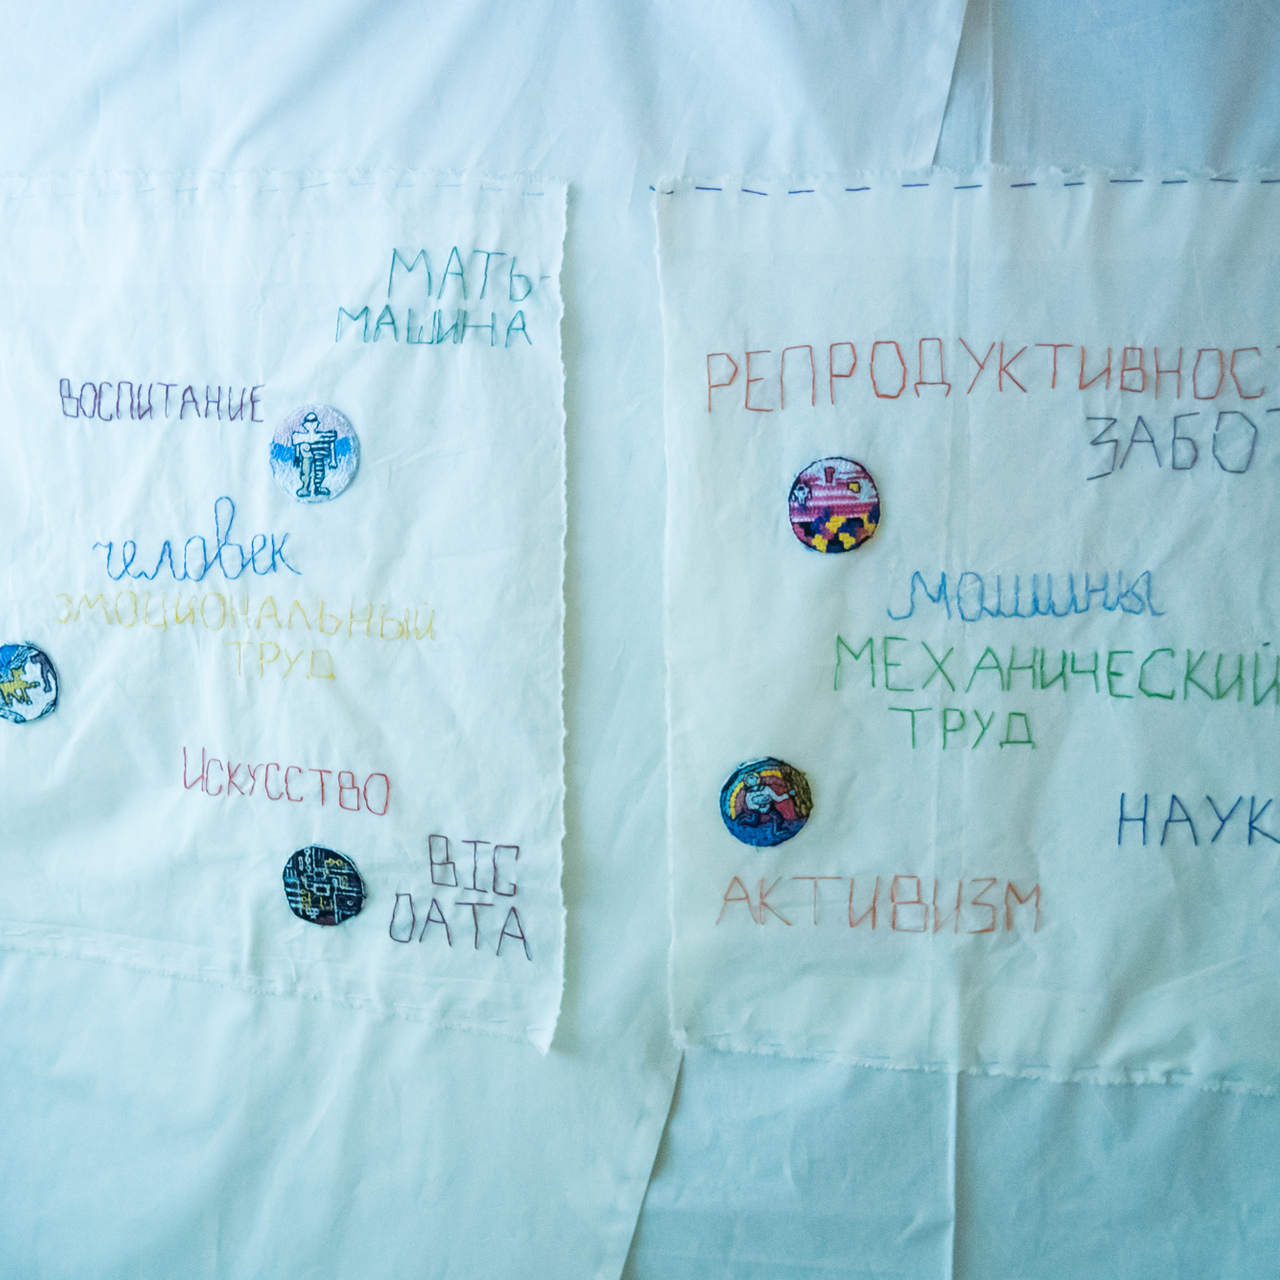 МАТЬ-
МАШИНА
ВОСПИТАНИЕ
человек
ЭМОЦИОНАЛЬНЫЙ
ТРУД
ИСКУССТВО
BIG
DATA
РЕПРОДУКТИВНОС
ЗАБОТ
машины
МЕХАНИЧЕСКИЙ
ТРУД
НАУК
АКТИВИЗМ